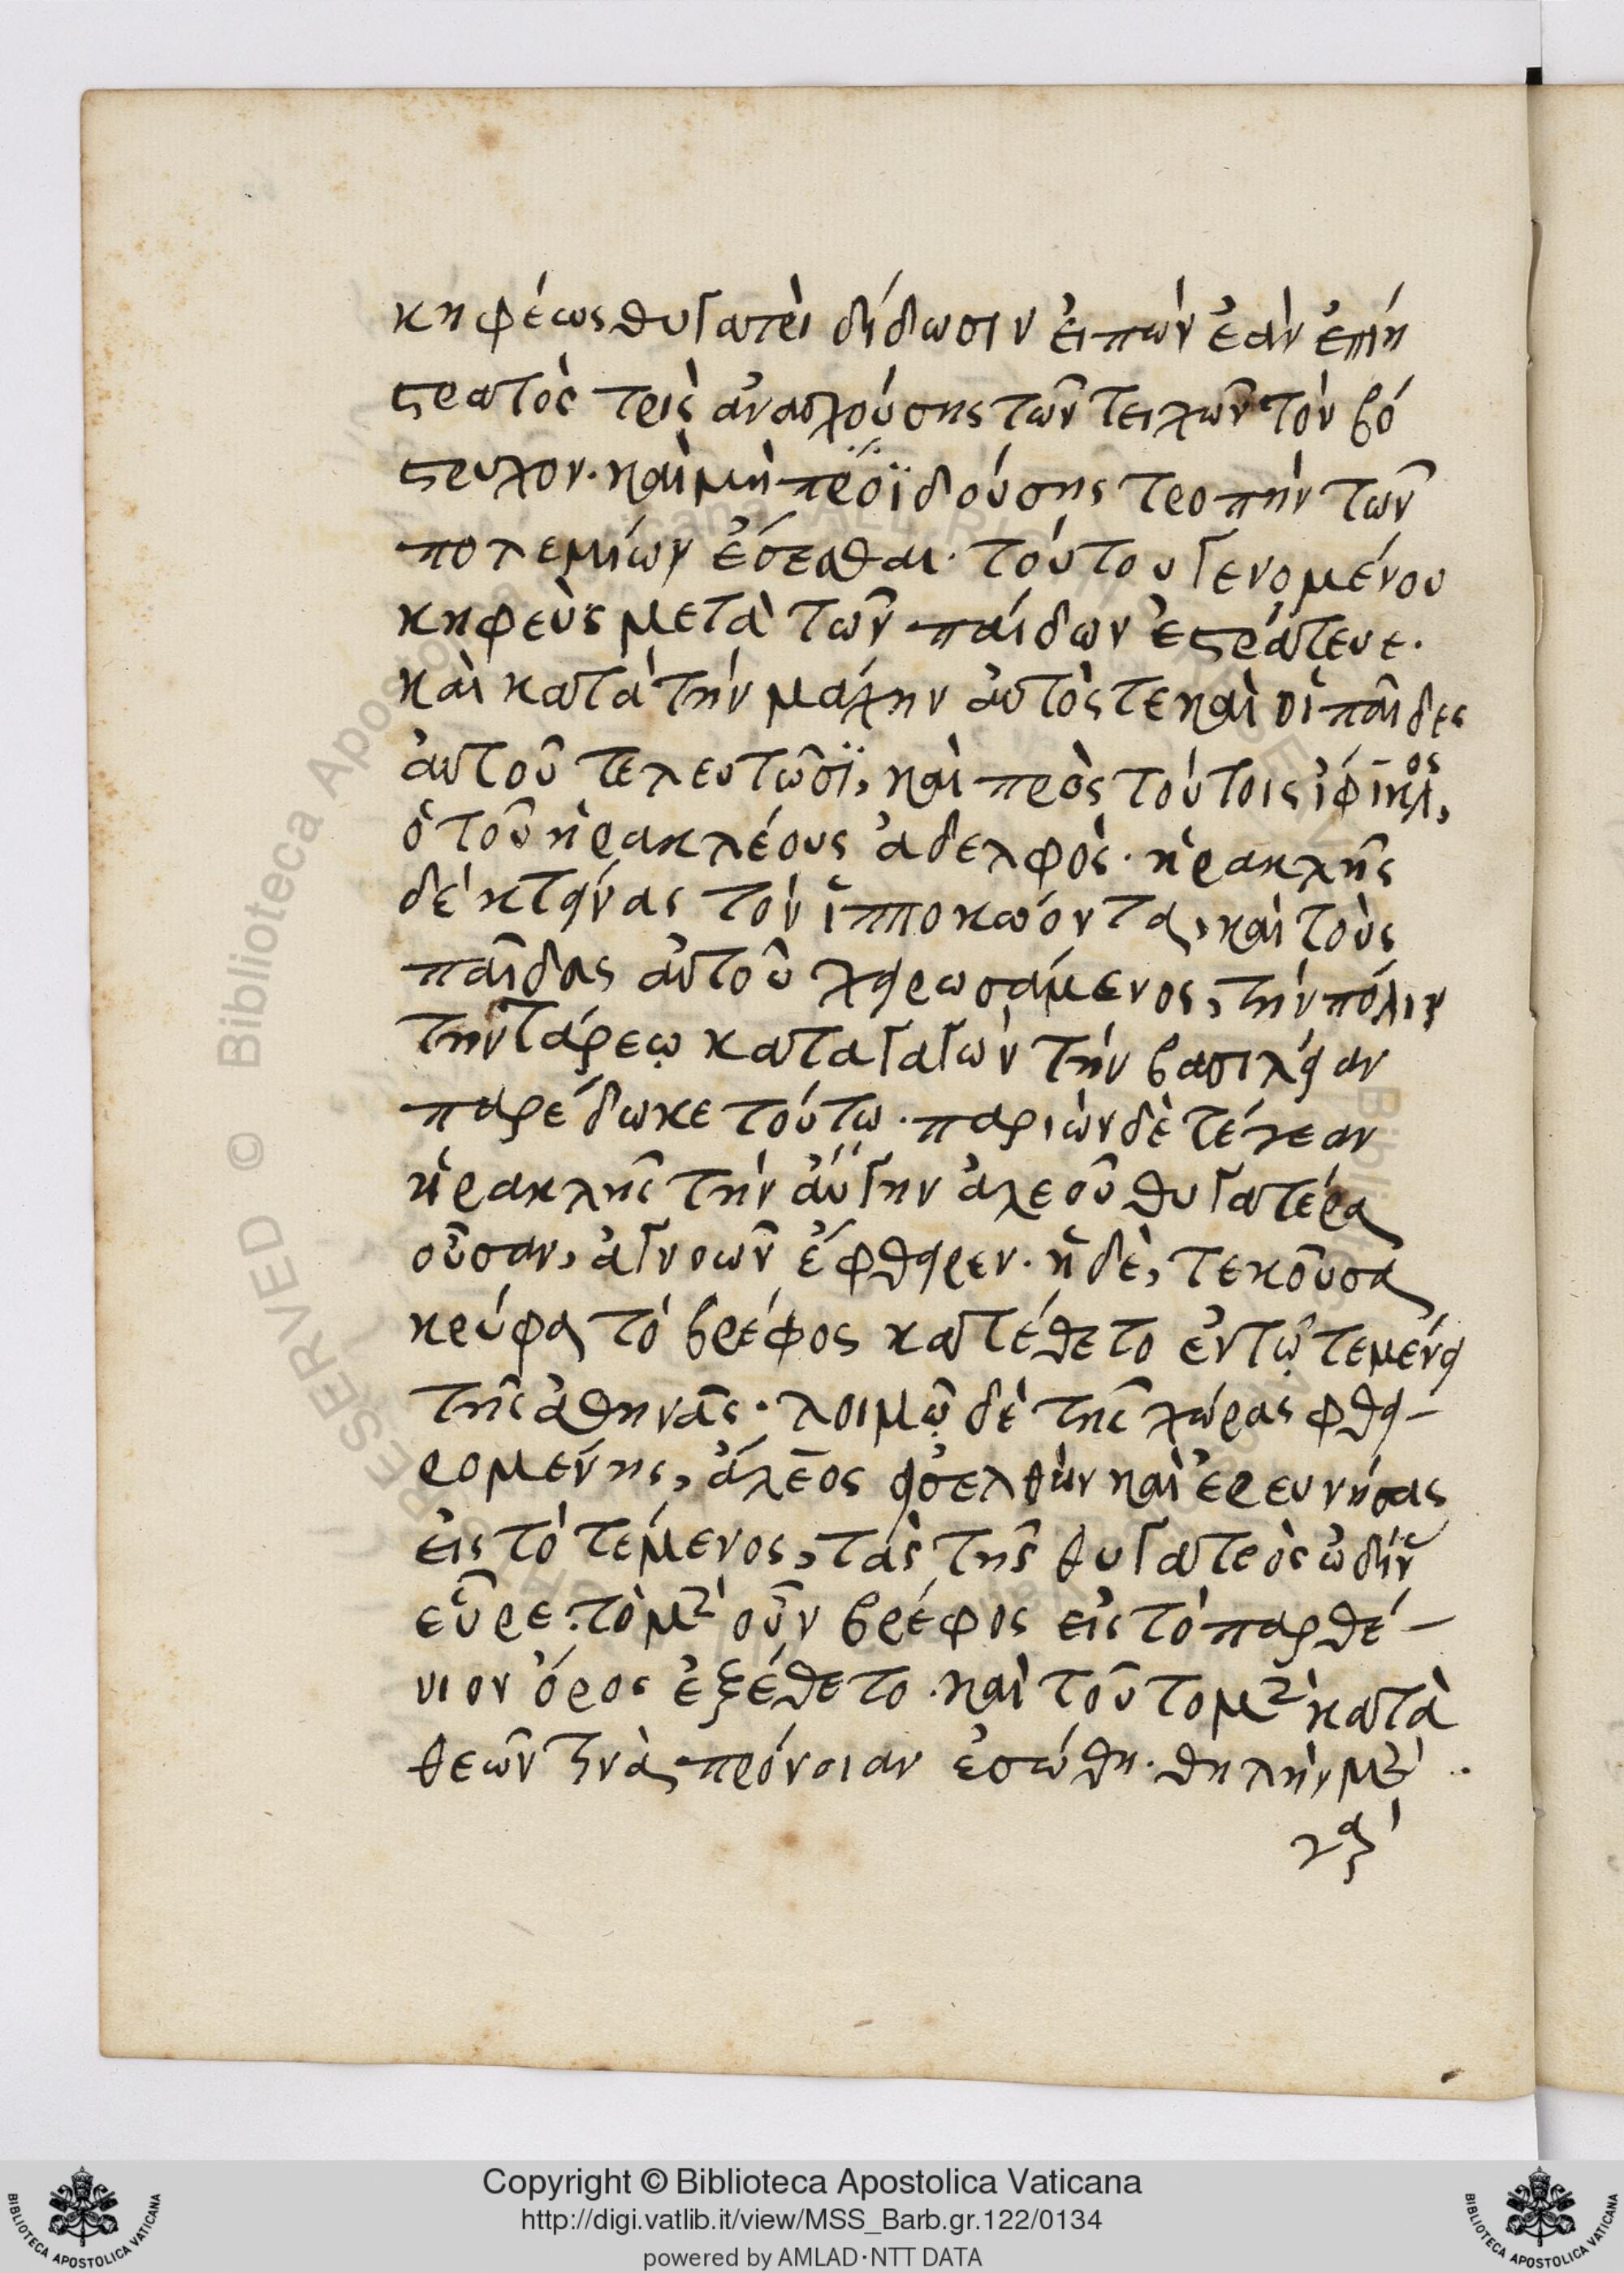 κηφέως θυγατρὶ δίδωσιν ἐιπὼν ἐὰν ἐπίη
στρατὸς τρὶς ἀνασχούσης τῶν τειχῶν τὸν βό
στρυχον. καὶ μὴ προϊδούσης τροπὴν τῶν
πολεμίων ἔσεσθαι. τούτου γενομένου
κηφεὺς μετὰ τῶν παίδων ἐστράτευε.
καὶ κατὰ τὴν μάχην ἀυτός τε καὶ οἱ παῖδες
ἀυτοῦ τελευτῶσϊ, καὶ πρὸς τούτοις ἰφικλος,
ὁ τοῦ ἡρακλέους ἀδελφὸς. ἡρακλῆς
δὲ κτείνας τὸν ἱπποκόωντα, καὶ τοὺς
παῖδας ἀυτοῦ χειρωσάμενος, τὴν πόλιν
τὴν τάρεῳ καταγαγὼν τὴν βασιλείαν
παρέδωκε τούτω. παριὼν δὲ τέγεαν
ἡρακλῆς τὴν ἀύγην ἀλεοῦ θυγατέρα
οὖσαν, ἀγνοῶν ἔφθειρεν. ἡ δὲ, τεκοῦσα
κρύφα τὸ βρέφος κατέθετο ἐν τῷ τεμένει
τῆς ἀθηνᾶς. λοιμῷ δὲ τῆς χώρας φθει-
ρομένης, ἄλεος εἰσελθὼν καὶ ἐρευνήσας
εἰς τὸ τέμενος, τὰς τῆς θυγατρὸς ὠδῖν
εὗρε. τὸ μὲν οὖν βρέφος εἰς τὸ παρθέ-
νιον ὄρος ἐξέθετο. καὶ τοῦτο μὲν κατὰ
θεῶν τινὰ πρόνοιαν ἐσώθη. θηλὴν μὲν
γὰρ
Copyright © Biblioteca Apostolica Vaticana
http://digi.vatlib.it/view/MSS_Barb.gr.122/0134
powered by AMLAD·NTT DATA